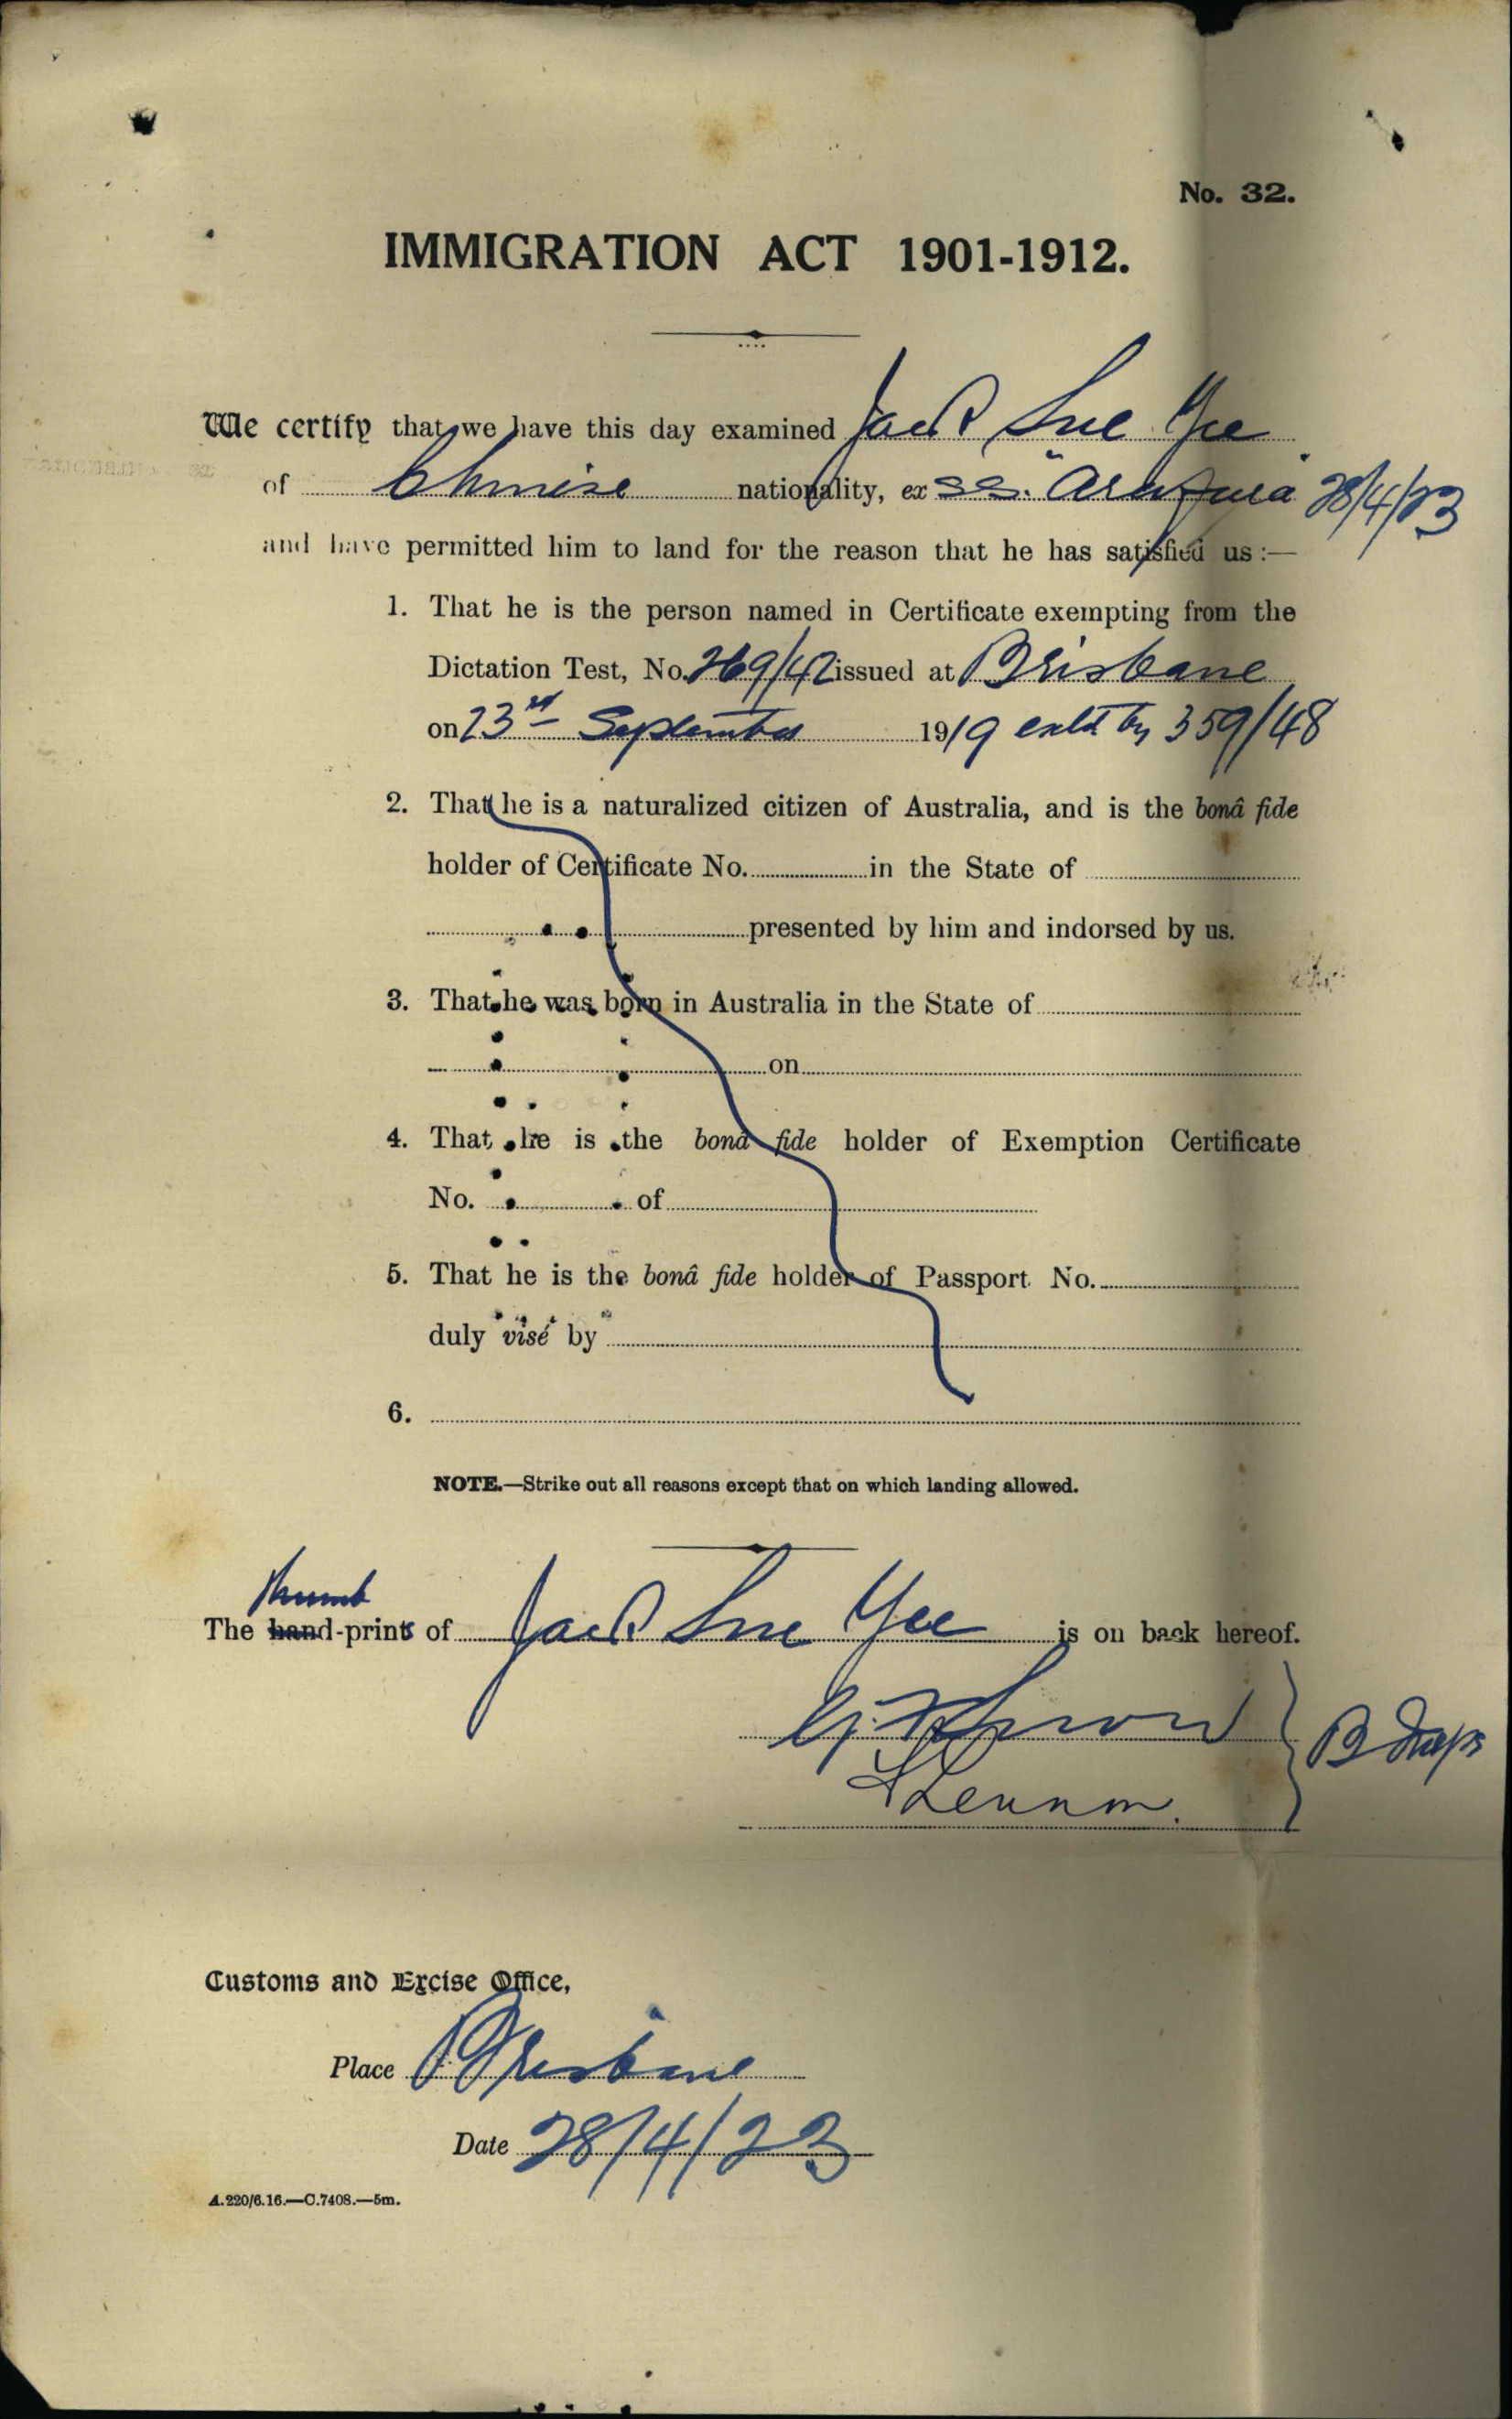 No. 32.
IMMIGRATION ACT 1901-1912.
We certify that we have this day examined Jack Sue Yee
of Chinese nationality, ex ss. "Arafura" 28/4/23
and have permitted him to land for the reason that he has satisfied us :—
1. That he is the person named in Certificate exempting from the
Dictation Test, No. 269/42 issued at Brisbane
on 23rd September 1919 extd by 359/48
2. That he is a naturalized citizen of Australia, and is the bonâ fide
holder of Certificate No. in the State of
presented by him and indorsed by us.
3. That he was born in Australia in the State of
on
4. That he is the bonâ fide holder of Exemption Certificate
No. of
5. That he is the bonâ fide holder of Passport No.
duly visé by
6.
NOTE.—Strike out all reasons except that on which landing allowed.
thumb
The hand-prints of Jack Sue Yee is on back hereof.
Lennon.
Customs and Excise Office,
Place Brisbane
Date 28/4/23
A.220/6.16.—C.7408.—5m.